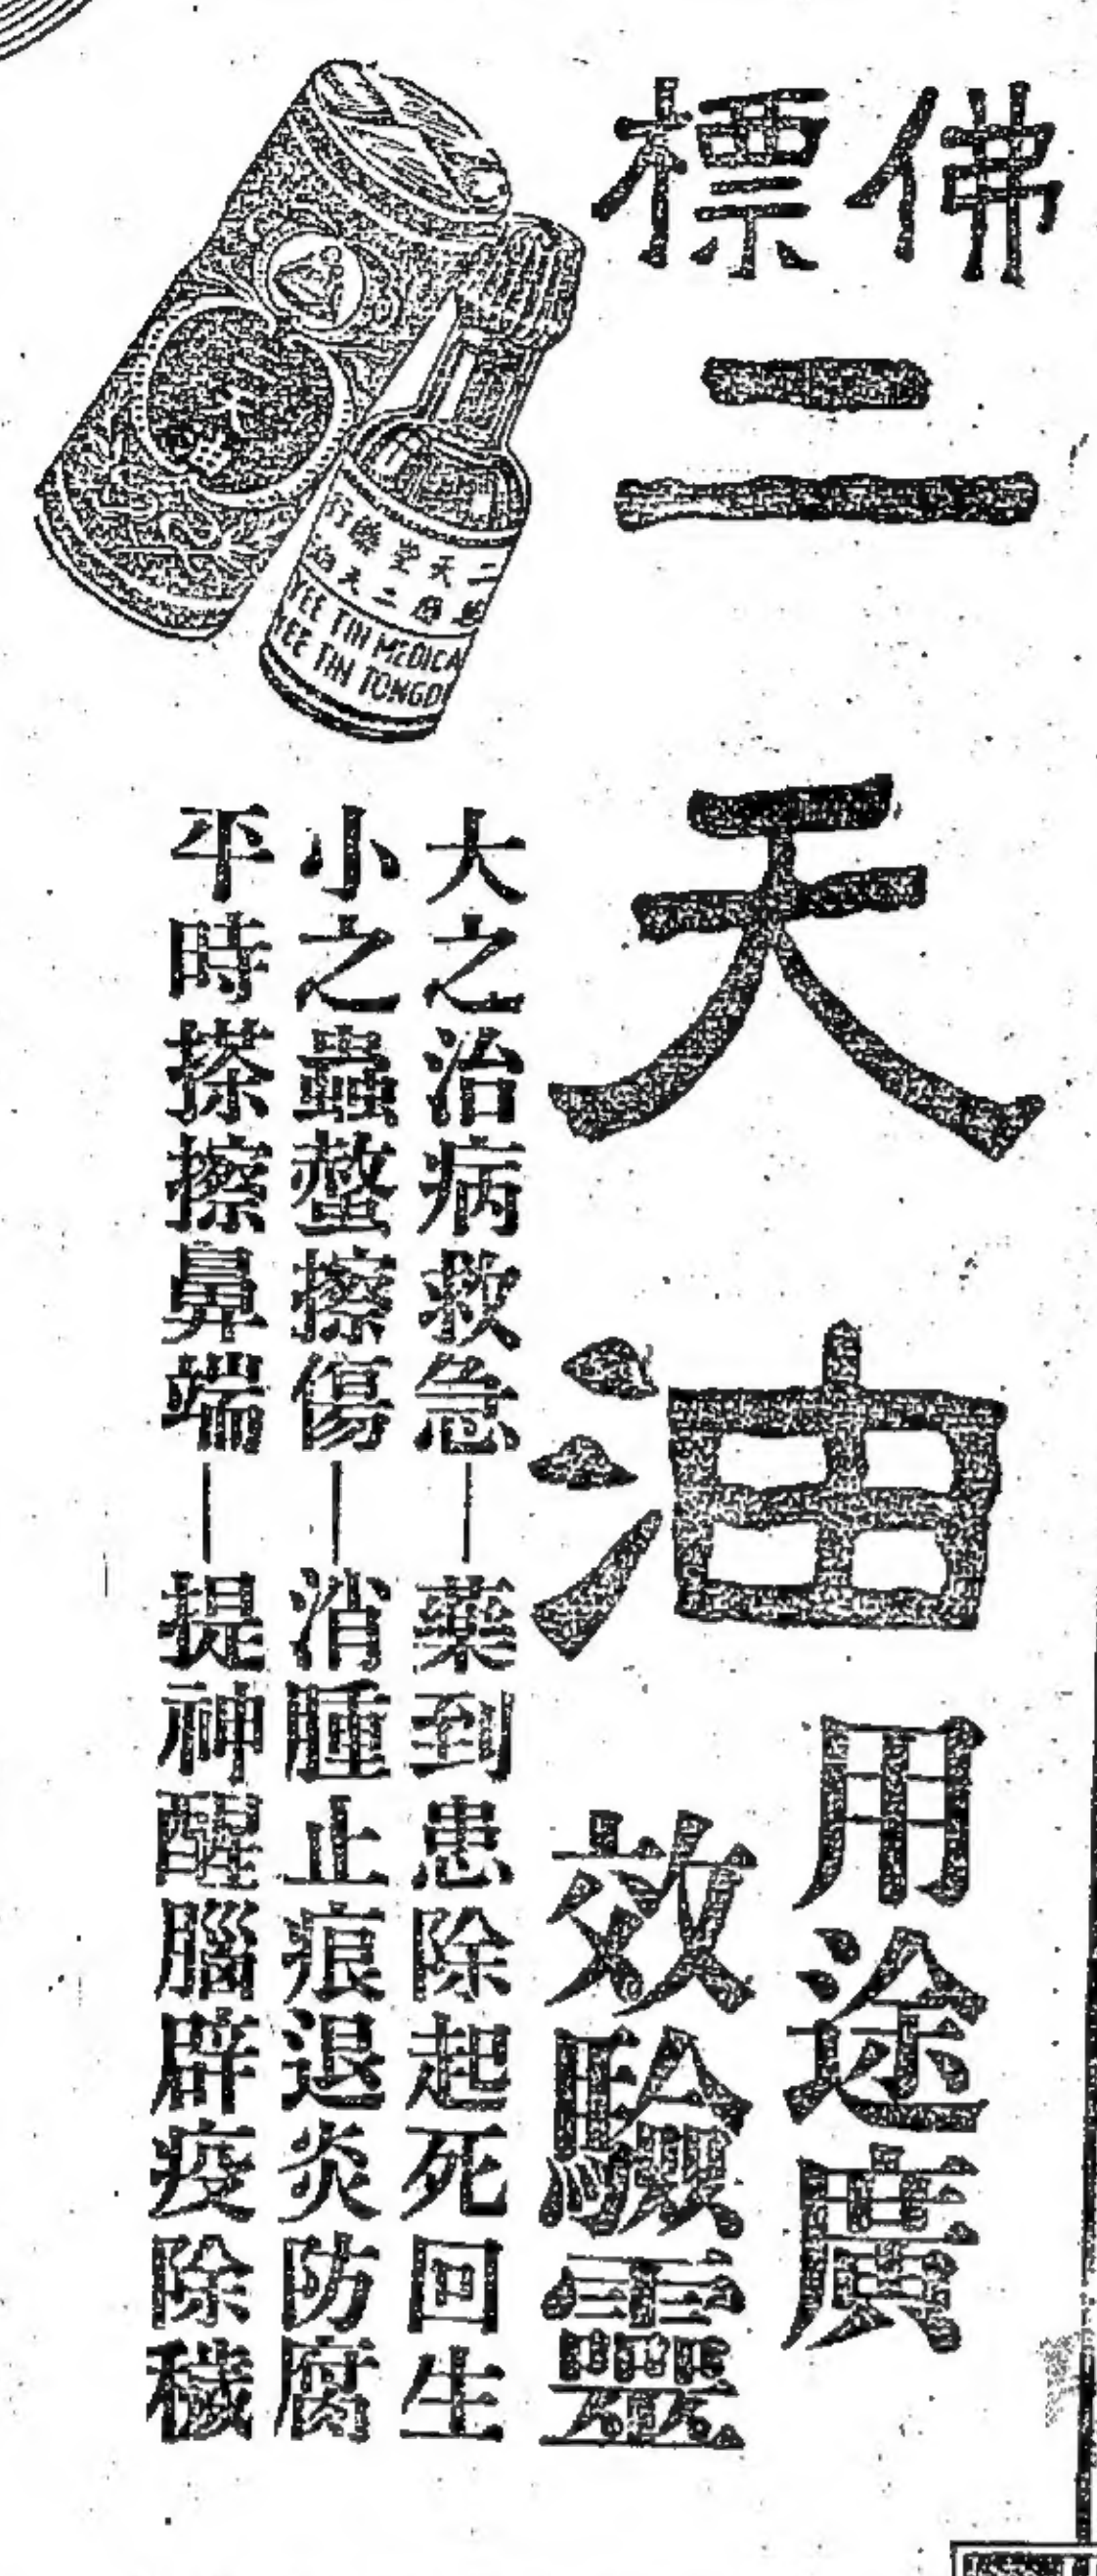 佛標
二天油
用途廣
效驗靈
大之治病救急—藥到患除起死回生
小之蟲螫擦傷—消腫止痕退炎防腐
平時搽擦鼻端—提神醒腦辟疫除穢
二天油
二天堂藥行
二天油
YEE TIN MEDICA
YEE TIN TONG